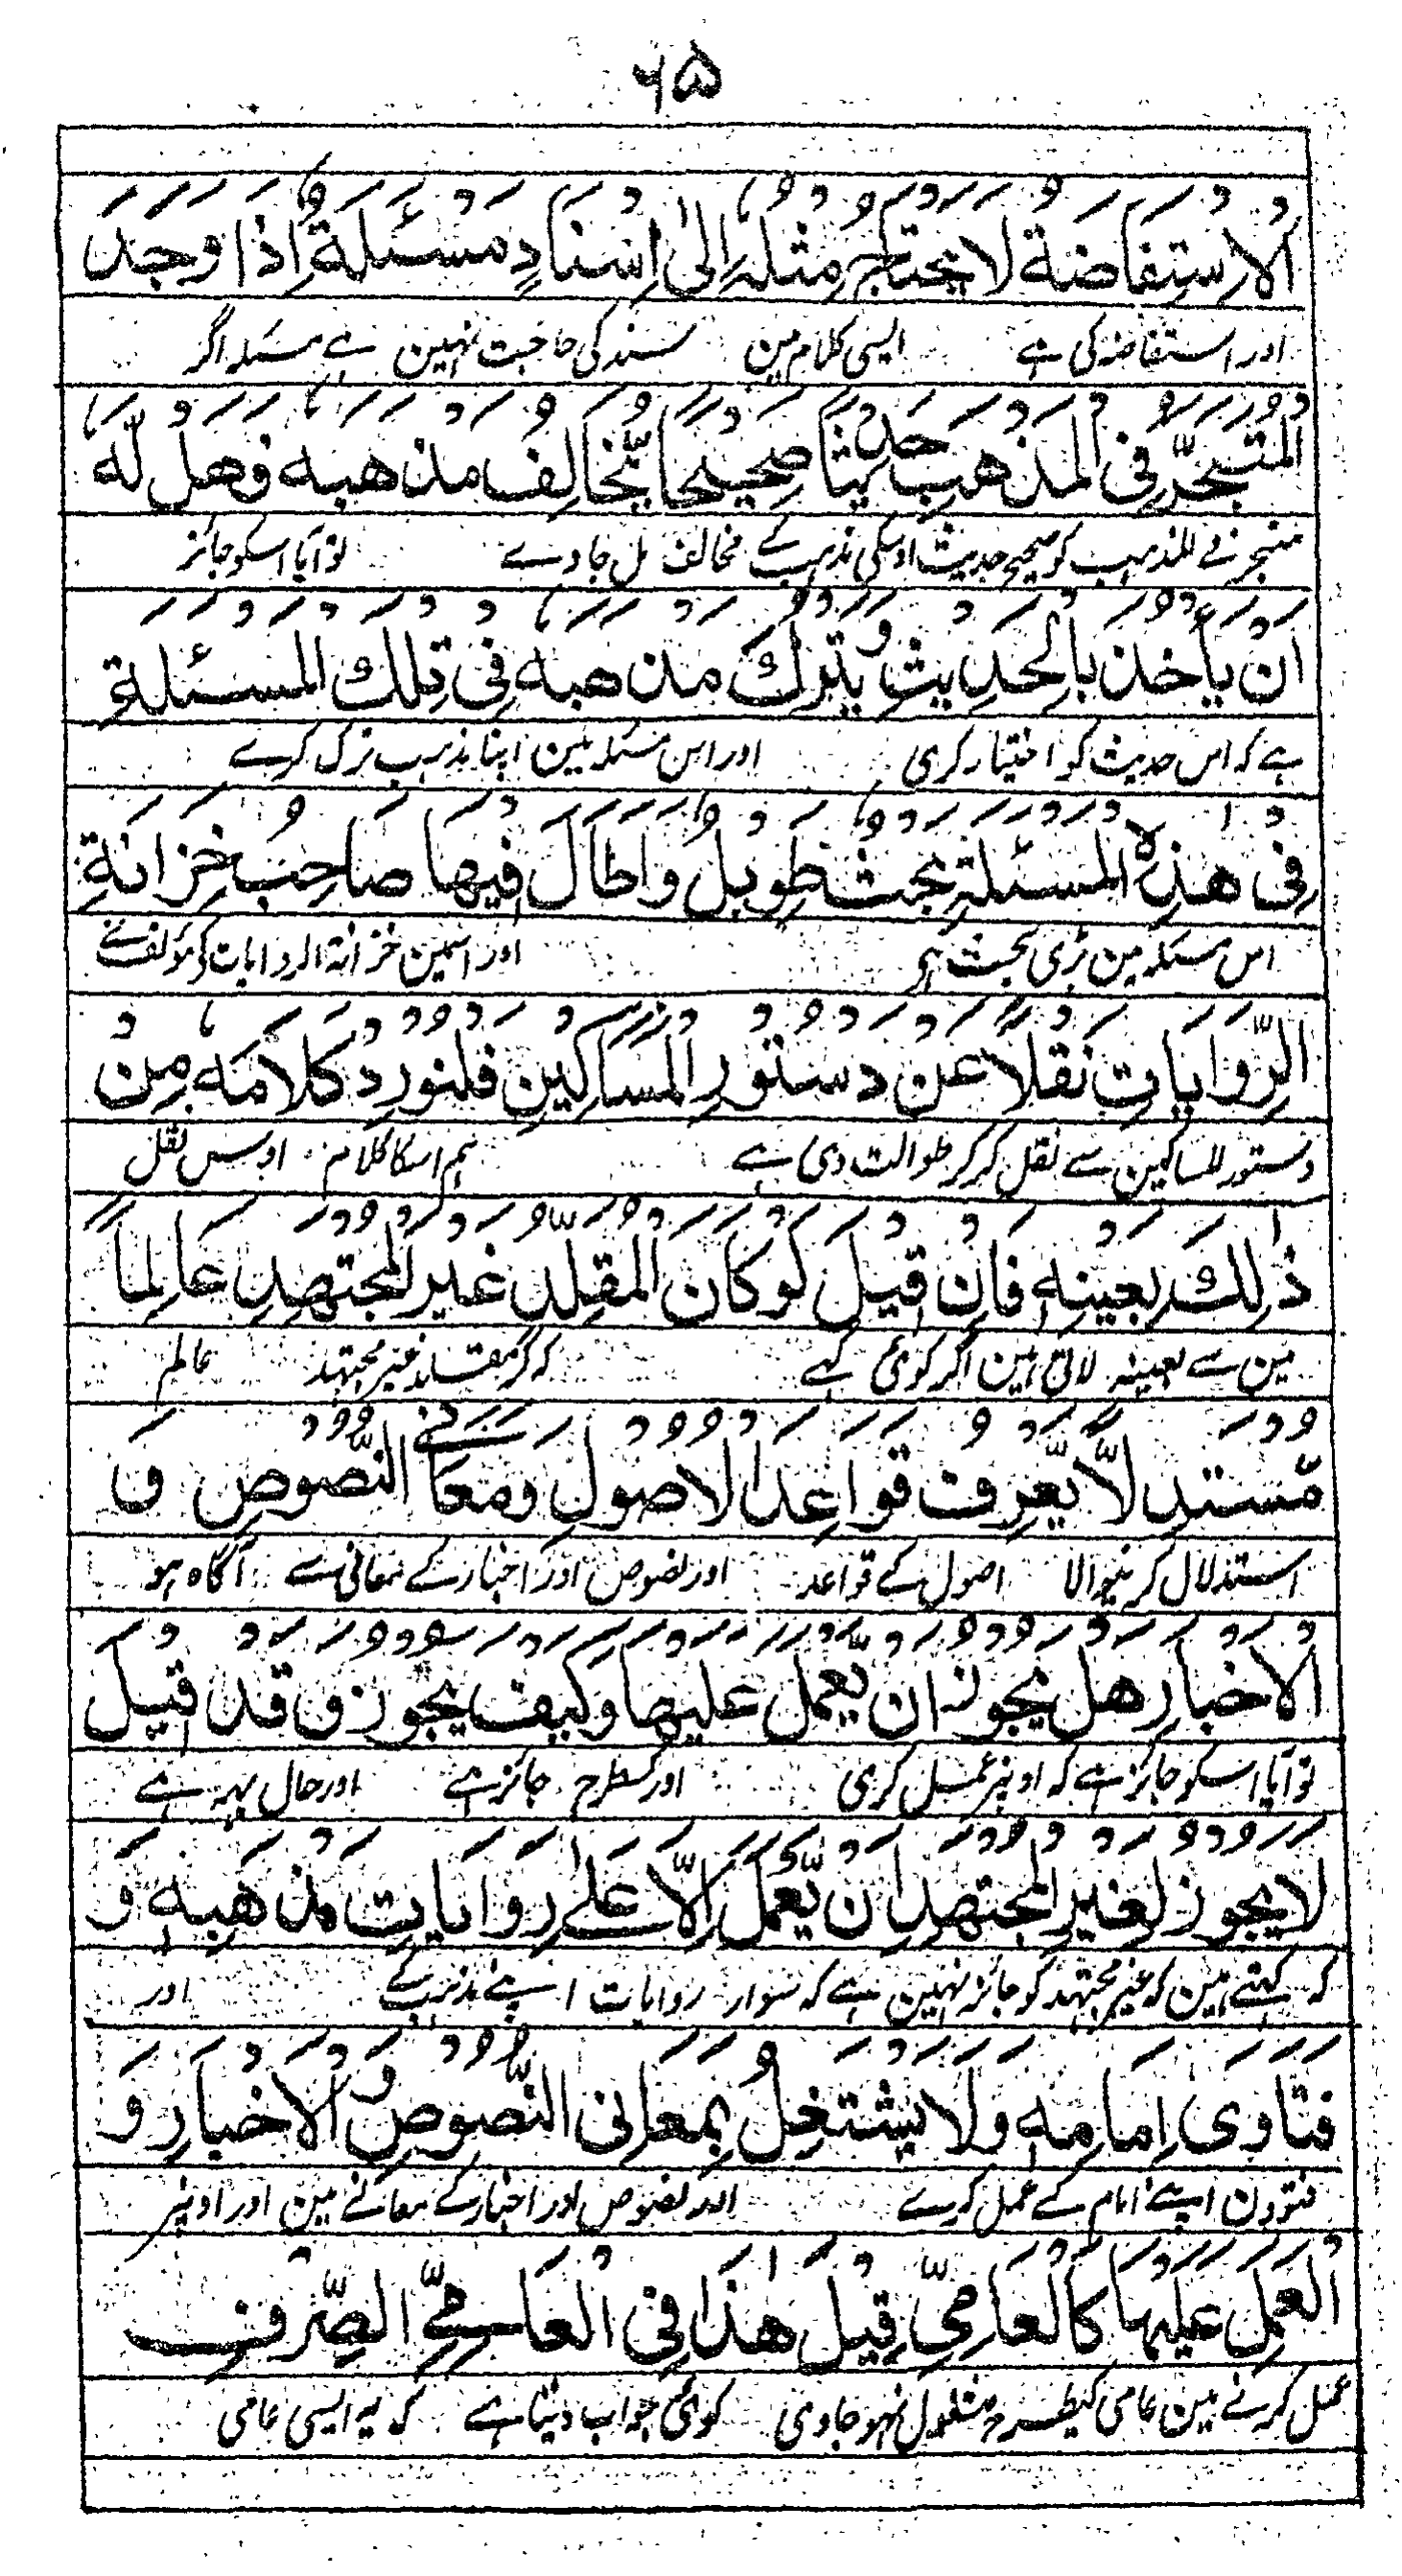 ۶۵
الاِسْتِفَاضَةُ لا يحتاج مِثْلُه اِلىٰ اِسْنَادٍ مَسْئلة اِذَا وَجَدَ
اور استفاضہ کی ہے ایسی کلام مین سند کی حاجت نہین ہے مسئلہ اگر
المتبحّر فِى المذهبِ حديثا صحيحا يّخالِف مذهبه فهل لّه
متبحر فے المذہب کو صحیح حدیث اوسکی مذہب کے مخالف مل جاوے تو آیا اسکو جائز
اَنْ يأخذ بِالحَدِيثِ و يترك مذهبه فِى تِلك المسئلةِ
ہے کہ اس حدیث کو اختیار کری اور اس مسئلہ مین اپنا مذہب ترک کرے
فِى هٰذِهِ المسئلةِ بحث طَوِيلٌ وَاَطَالَ فِيها صَاحِبُ خِزَانَةِ
اس مسئلہ مین بڑی بحث ہی اور اسمین خزانۃ الروایات کے مؤلف نے
الرِّوَايَاتِ نَقلًا عَن دستورِ المسَاكِين فلنورِد كَلَامَه مِنْ
دستور المساکین سے نقل کر کر طوالت دی ہے ہم اسکا کلام اوس نقل
ذٰلِكَ بعينِه فَاِن قِيل لَو كَان المقلّد غير المجتهدِ عَالِمًا
مین سے بعینہ لاتی ہین اگر کوئی کہے کہ گر مقلد غیر مجتہد عالم
مّستدِلاًّ يّعرِف قوَاعِد الاصولِ ومَعَانِے النّصوص و
استدلال کرنیوالا اصول کے قواعد اور نصوص اور اخبار کے معانی سے آگاہ ہو
الاخبَارِ هل يجوز ان يّعمل عليها وكيف يجوز و قد قِيل
تو آیا اسکو جائز ہے کہ اونپر عمل کری اور کسطرح جائز ہے اور حال یہہ ہے
لا يجوز لِغيرِ المجتهدِ ان يّعمَل اِلَّا عَلےٰ رِوَايَاتِ مذهَبِه وَ
کہ کہتے ہین کہ غیر مجتہد کو جائز نہین ہے کہ سوار روایات اپنے مذہب کے اور
فتَاوَى اِمَامِه وَلَا يشتغِلُ بِمعَانِى النّصوصِ و الاخبَارِ وَ
فتوون اپنے امام کے عمل کرے اور نصوص اور اخبار کے معانے مین اور اونپر
العملِ عليهَا كَالعَامِىِّ قِيْلَ هٰذَا فِى العَامِىِّ الصِّرفِ
عمل کرنے مین عامی کیطرح مشغول نہو جاوی کوئی جواب دیتا ہے کہ یہ ایسی عامی